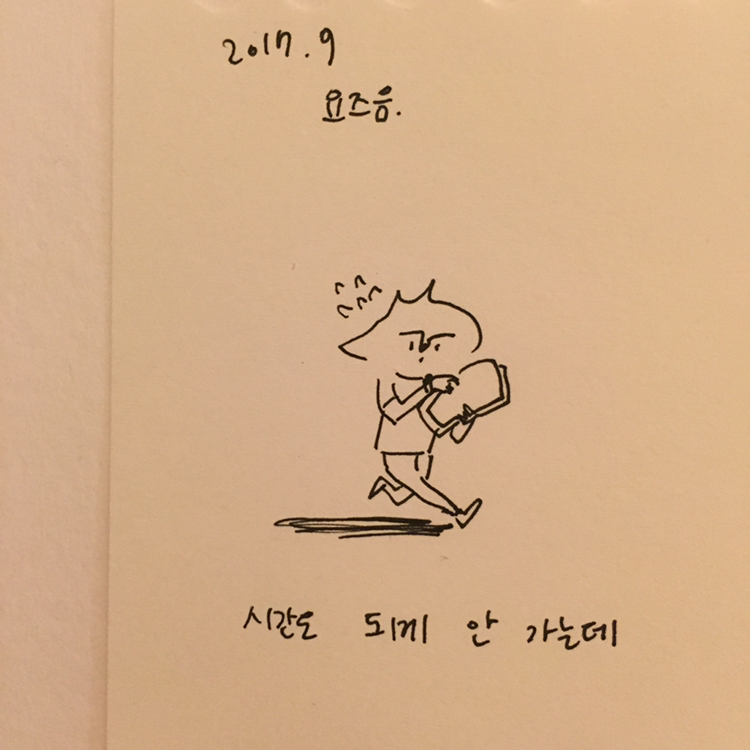 2017.9
요즈음.
시간도 되게 안 가는데